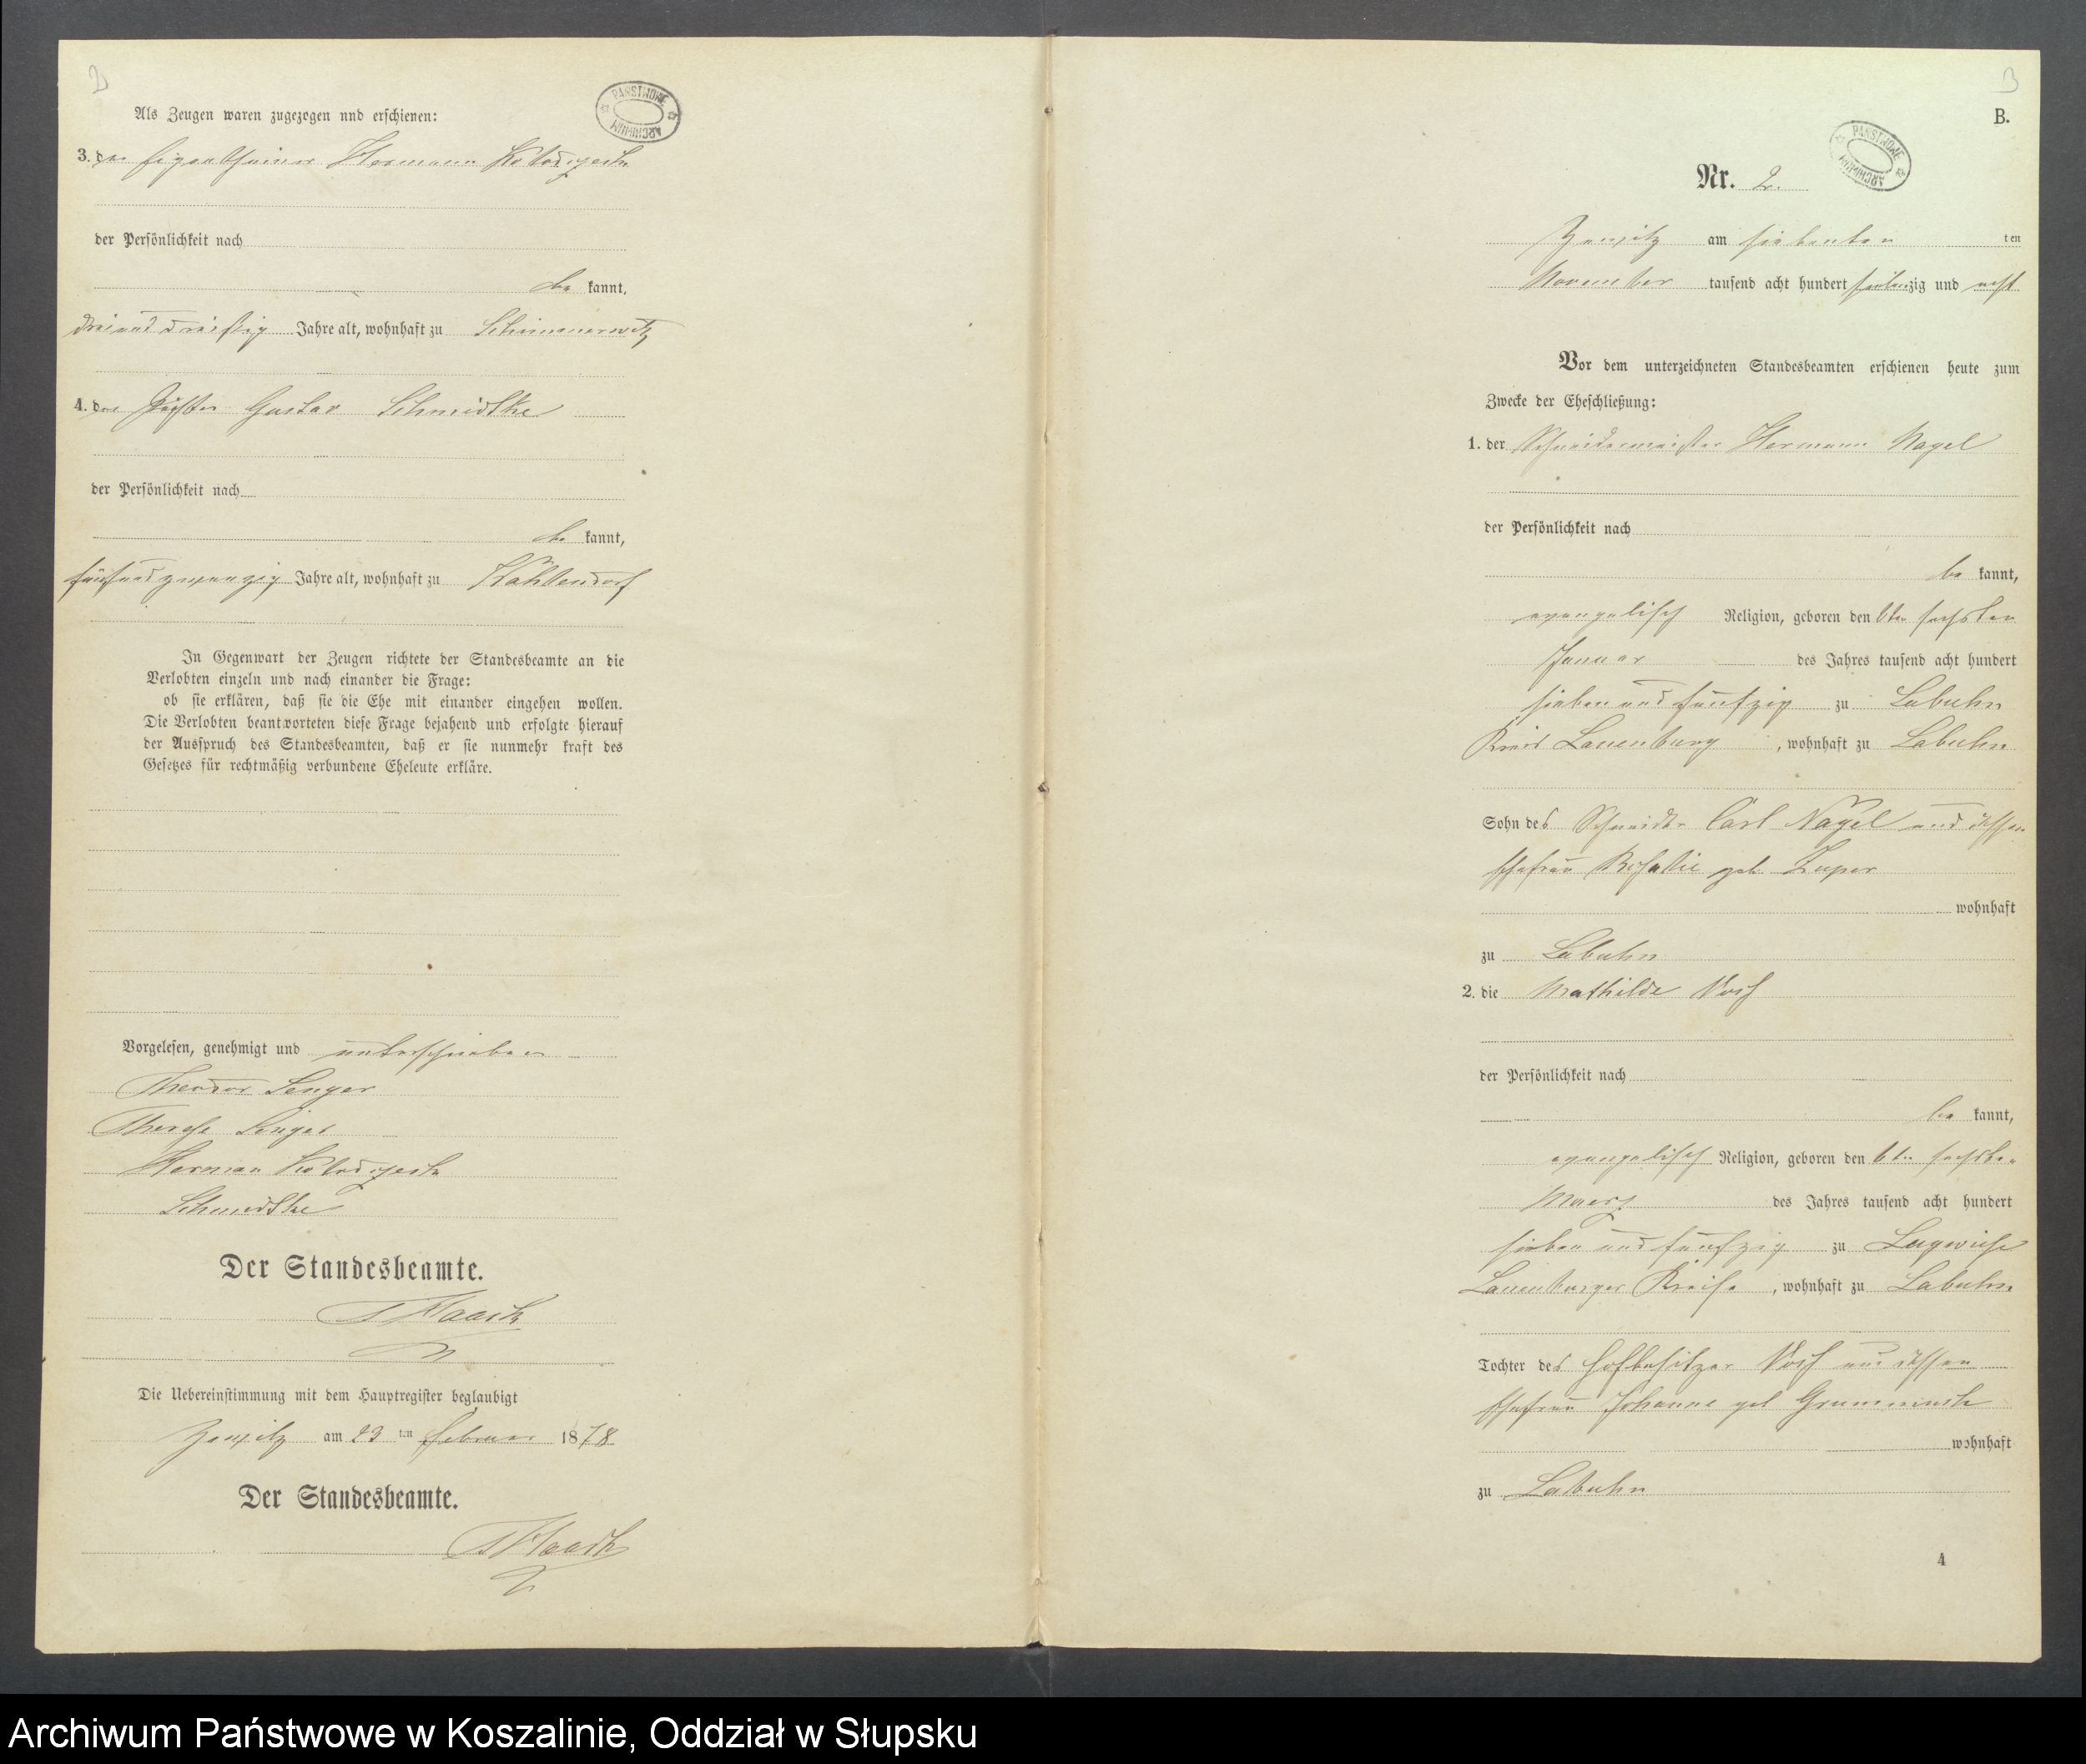 2
Als Zeugen waren zugezogen und erschienen:
PAŃSTWOWE ARCHIWUM
3. der Eigenthümer Hermann
der Persönlichkeit nach
be kannt,
dreiunddreißig Jahre alt, wohnhaft zu Schimmerwitz
4. der Pächter Gustav Schmidtke
der Persönlichkeit nach
be kannt,
fünfundzwanzig Jahre alt, wohnhaft zu
In Gegenwart der Zeugen richtete der Standesbeamte an die
Verlobten einzeln und nach einander die Frage:
ob sie erklären, daß sie die Ehe mit einander eingehen wollen.
Die Verlobten beantworteten diese Frage bejahend und erfolgte hierauf
der Ausspruch des Standesbeamten, daß er sie nunmehr kraft des
Gesetzes für rechtmäßig verbundene Eheleute erkläre.
Vorgelesen, genehmigt und unterschrieben
Theodor Senger
Therese Senger
Herman
Schmidtke
Der Standesbeamte.
Die Uebereinstimmung mit dem Hauptregister beglaubigt
Zewitz am 23 ten Februar 1878
Der Standesbeamte.
3
B.
PAŃSTWOWE ARCHIWUM
Nr. 2.
Zewitz am siebenten ten
November tausend acht hundert siebenzig und acht
Vor dem unterzeichneten Standesbeamten erschienen heute zum
Zwecke der Eheschließung:
1. der Schneidermeister Hermann Nagel
der Persönlichkeit nach
be kannt,
evangelisch Religion, geboren den 6ten sechsten
Januar des Jahres tausend acht hundert
sieben und fünfzig zu Labuhn
Kreis Lauenburg, wohnhaft zu Labuhn
Sohn des Schneider Carl Nagel und dessen
Ehefrau geb
wohnhaft
zu Labuhn
2. die Mathilde
der Persönlichkeit nach
be kannt,
evangelisch Religion, geboren den 6ten sechsten
Maerz des Jahres tausend acht hundert
sieben und fünfzig zu
Lauenburger Kreise, wohnhaft zu Labuhn
Tochter des Hofbesitzer und dessen
Ehefrau Johanne geb
wohnhaft
zu Labuhn
4
Archiwum Państwowe w Koszalinie, Oddział w Słupsku